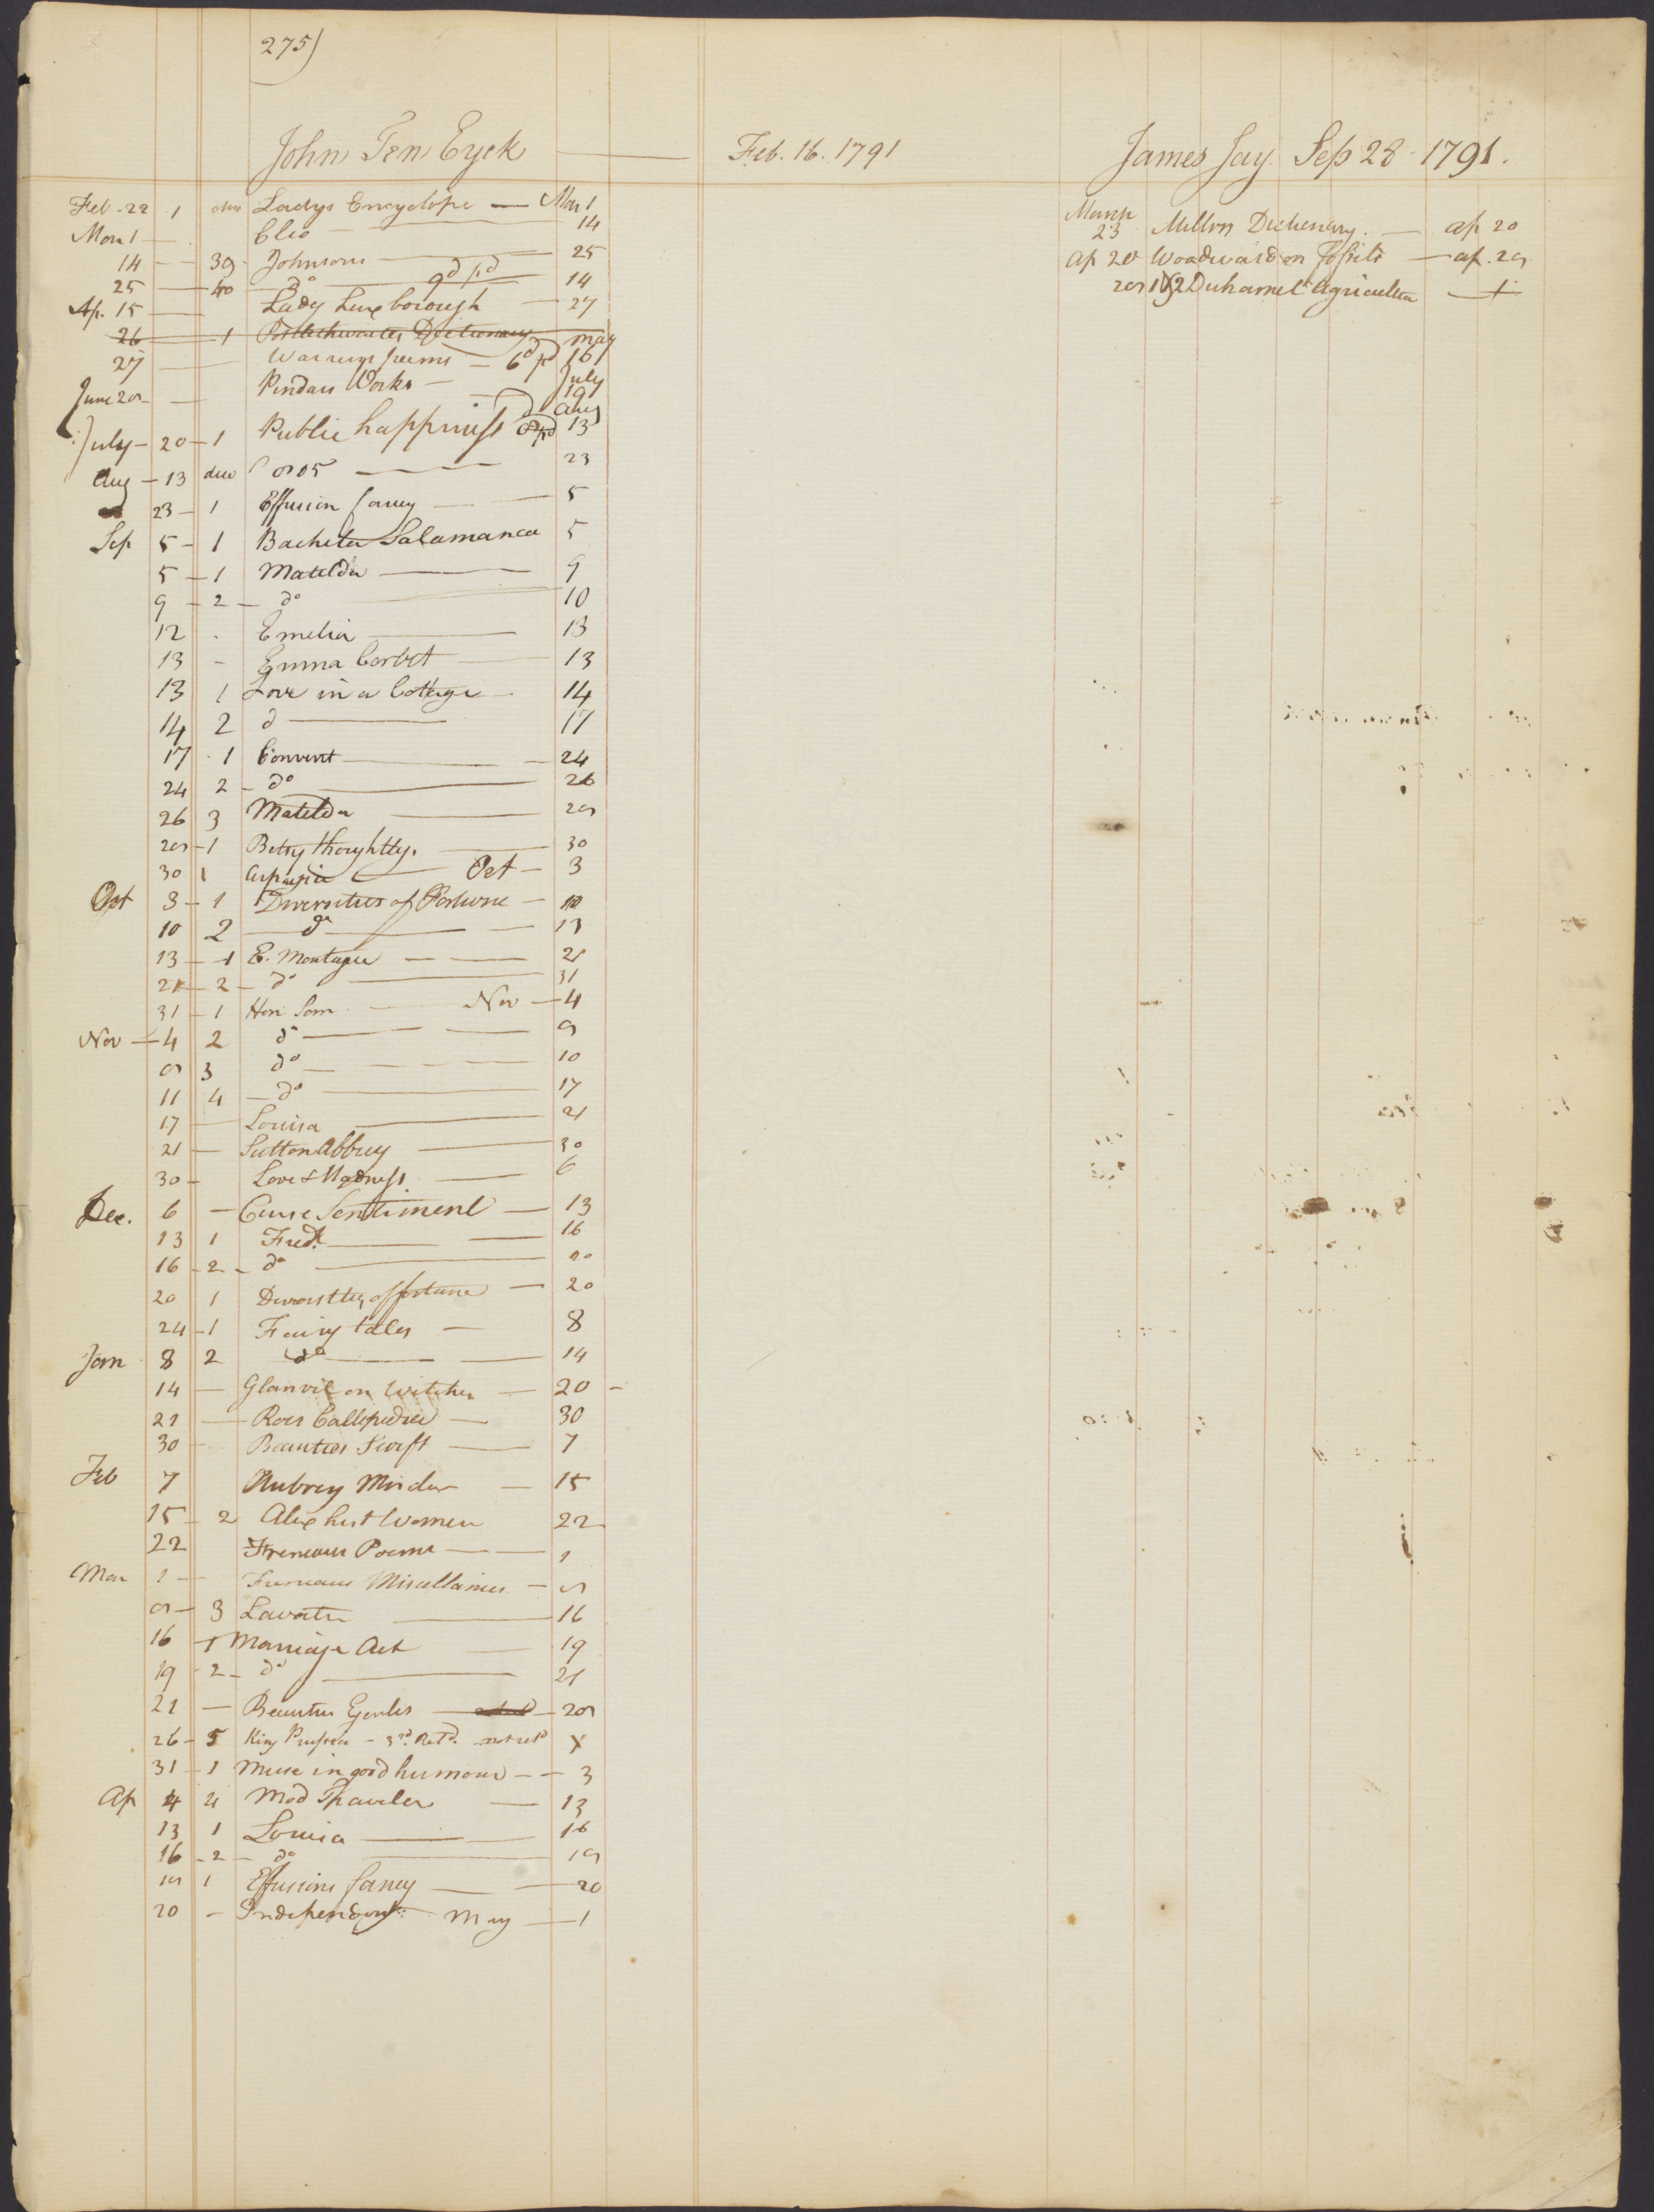 275)
John Ten Eyck — Feb. 16. 1791
Feb. 22 1 Ladys Encyclope — Mar 1
Mar 1 — Cleo — 14
14 — 39 Johnsons — 25
25 — 40 do 9d pd 14
Ap. 15 — Lady Luxborough — 27
26 — 1 Postlethwaites Dictionary — may
27 — Warrens poems — 6d pd 16
June 20 — Pindars Works — July 19
July — 20 — 1 Public happiness pd Aug 13
Aug — 13 — 23
23 — 1 Effusion fancy — 5
Sep 5 — 1 Bachelor Salamanca 5
5 — 1 Matilda — 9
9 — 2 — do 10
12 . Emelia — 13
13 — Emma Corbet — 13
13 1 Love in a Cottage — 14
14 2 d — 17
17 1 Convent — 24
24 2 — do — 26
26 3 Matilda — 29
29 — 1 Betsy thoughtly. — 30
30 1 Aspasia — Oct — 3
Oct 3 — 1 Diversities of Fortune — 10
10 2 — do — 13
13 — 1 E. Montague — 21
21 — 2 — do — 31
31 — 1 Hon Som — Nov — 4
Nov — 4 2 do — 9
9 3 do — 10
11 4 — do — 17
17 — Louisa — 21
21 — Sutton Abbey — 30
30 — Love & Madness — 6
Dec. 6 — Curse Sentiment — 13
13 1 Fredk — 16
16 — 2 — do — 20
20 1 Diversity of fortune — 20
24 — 1 Fairy tales — 8
Jan 8 2 do — 14
14 — Glanvil on Witches — 20 —
21 — Roes Callepedia — 30
30 — Beauties Swift — 7
Feb 7 Aubrey — 15
15 — 2 Alex hist Women 22
22 Freneaus Poems — 1
Mar 1 — Freneaus Miscellanies — 9
9 — 3 Lavater — 16
16 — 1 Marriage Act — 19
19 — 2 — do — 21
21 — Beauties — 29
26 — 5 King Prussia — 3rd Retd. not retd X
31 — 1 Muse in good humour — — 3
Ap 4 4 Mod Traveler — 13
13 1 Louisa — 16
16 — 2 — do — 19
19 1 Effusions fancy — 20
20 — Independent May — 1
James Jay Sep 28 1791.
March
23 Millers Dictionary. — ap 20
ap 20 Woodward on Fossils — ap. 29
29 1 & 2 Duhamels Agriculture — +